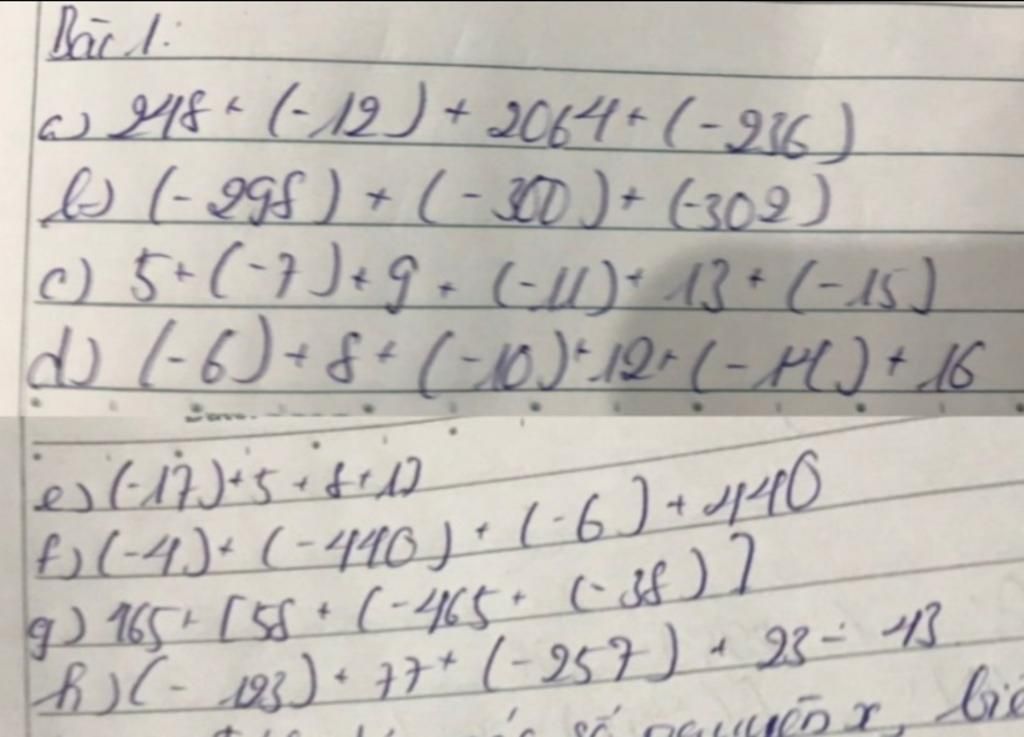 Bài 1:
a) 248 + (-12) + 2064 + (-236)
b) (-298) + (-300) + (-302)
c) 5 + (-7) + 9 + (-11) + 13 + (-15)
d) (-6) + 8 + (-10) + 12 + (-14) + 16
e) (-17) + 5 + 8 + 17
f) (-4) + (-440) + (-6) + 440
g) 465 + [58 + (-465 + (-38)]
h) (- 123) + 77 + (-257) + 23 - 43
số nguyên x,